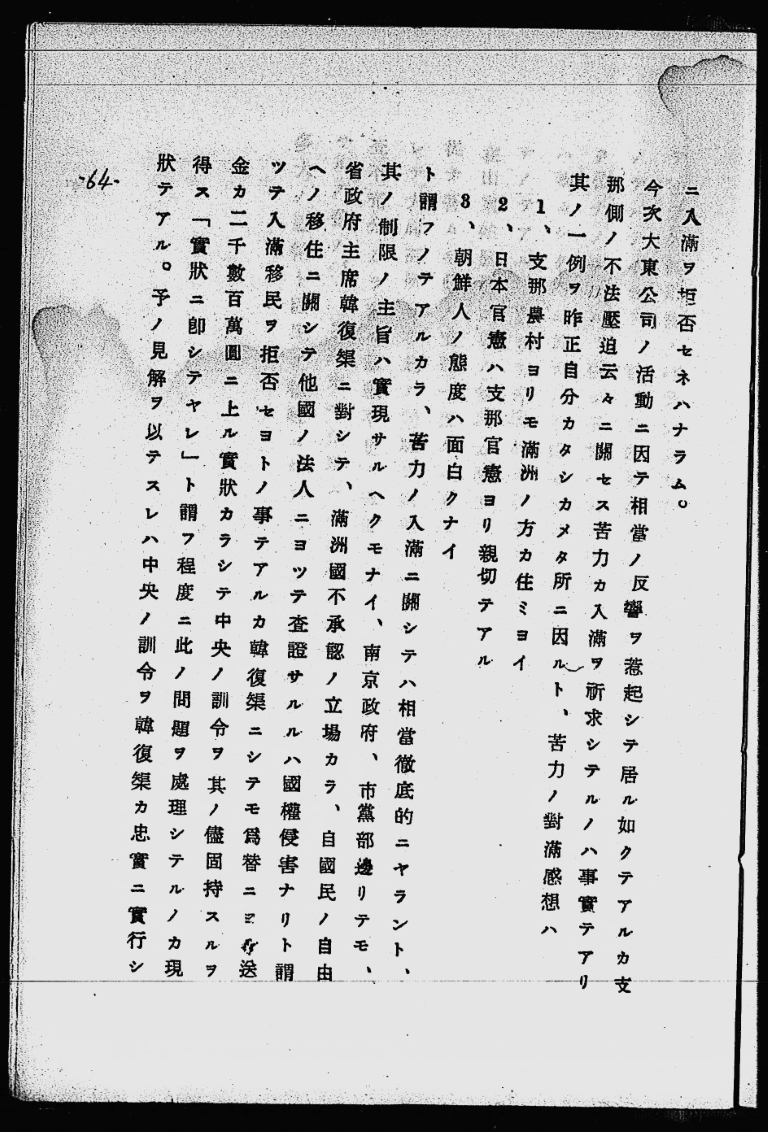 ニ入滿ヲ拒否セネハナラム。
今次大東公司ノ活動ニ因テ相當ノ反響ヲ惹起シテ居ル如クテアルカ支
那側ノ不法壓迫云々ニ關セス苦力カ入滿ヲ祈求シテルノハ事實テアリ
其ノ一例ヲ昨正自分カタシカメタ所ニ因ルト、苦力ノ對滿感想ハ
1、支那農村ヨリモ滿洲ノ方カ住ミヨイ
2、日本官憲ハ支那官憲ヨリ親切テアル
3、朝鮮人ノ態度ハ面白クナイ
ト謂フノテアルカラ、苦力ノ入滿ニ關シテハ相當徹底的ニヤラント、
其ノ制限ノ主旨ハ實現サルヘクモナイ、南京政府、市黨部邊リテモ、
省政府主席韓復榘ニ對シテ、滿洲國不承認ノ立場カラ、自國民ノ自由
ヘノ移住ニ關シテ他國ノ法人ニヨツテ査證サルルハ國權侵害ナリト謂
ツテ入滿移民ヲ拒否セヨトノ事テアルカ韓復榘ニシテモ爲替ニ送
金カ二千數百萬圓ニ上ル實狀カラシテ中央ノ訓令ヲ其ノ儘固持スルヲ
得ス「實狀ニ卽シテヤレ」ト謂フ程度ニ此ノ問題ヲ處理シテルノカ現
狀テアル。予ノ見解ヲ以テスレハ中央ノ訓令ヲ韓復榘カ忠實ニ實行シ
-64-